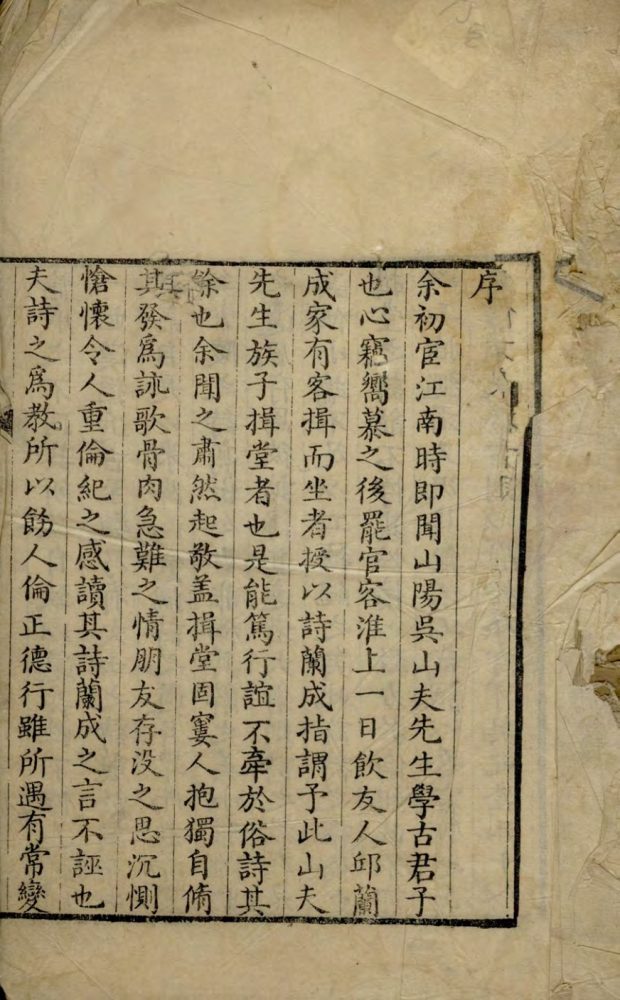 序
余初宦江南時即聞山陽吳山夫先生學古君子
也心竊嚮慕之後罷官客淮上一日飲友人邱蘭
成家有客揖而坐者授以詩蘭成指謂予此山夫
先生族子揖堂者也是能篤行誼不牽於俗詩其
餘也余聞之肅然起敬盖揖堂固窶人抱獨自脩
其發爲詠歌骨肉急難之情朋友存没之思沉惻
愴懷令人重倫紀之感讀其詩蘭成之言不誣也
夫詩之爲教所以飭人倫正德行雖所遇有常變